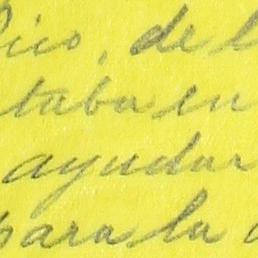 ico, de l
taba en
ayudar
para la